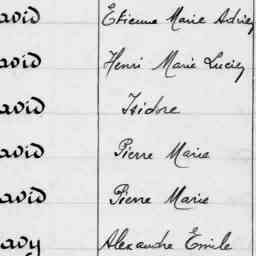 avid Etienne Marie Adrien
avid Henri Marie Lucien
avid Isidore
avid Pierre Marie
avid Pierre Marie
avy Alexandre Émile